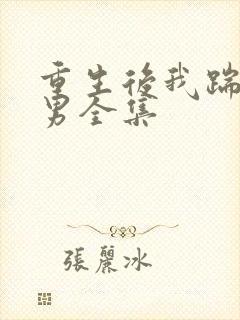 重生後我踹
男全集
張麗冰